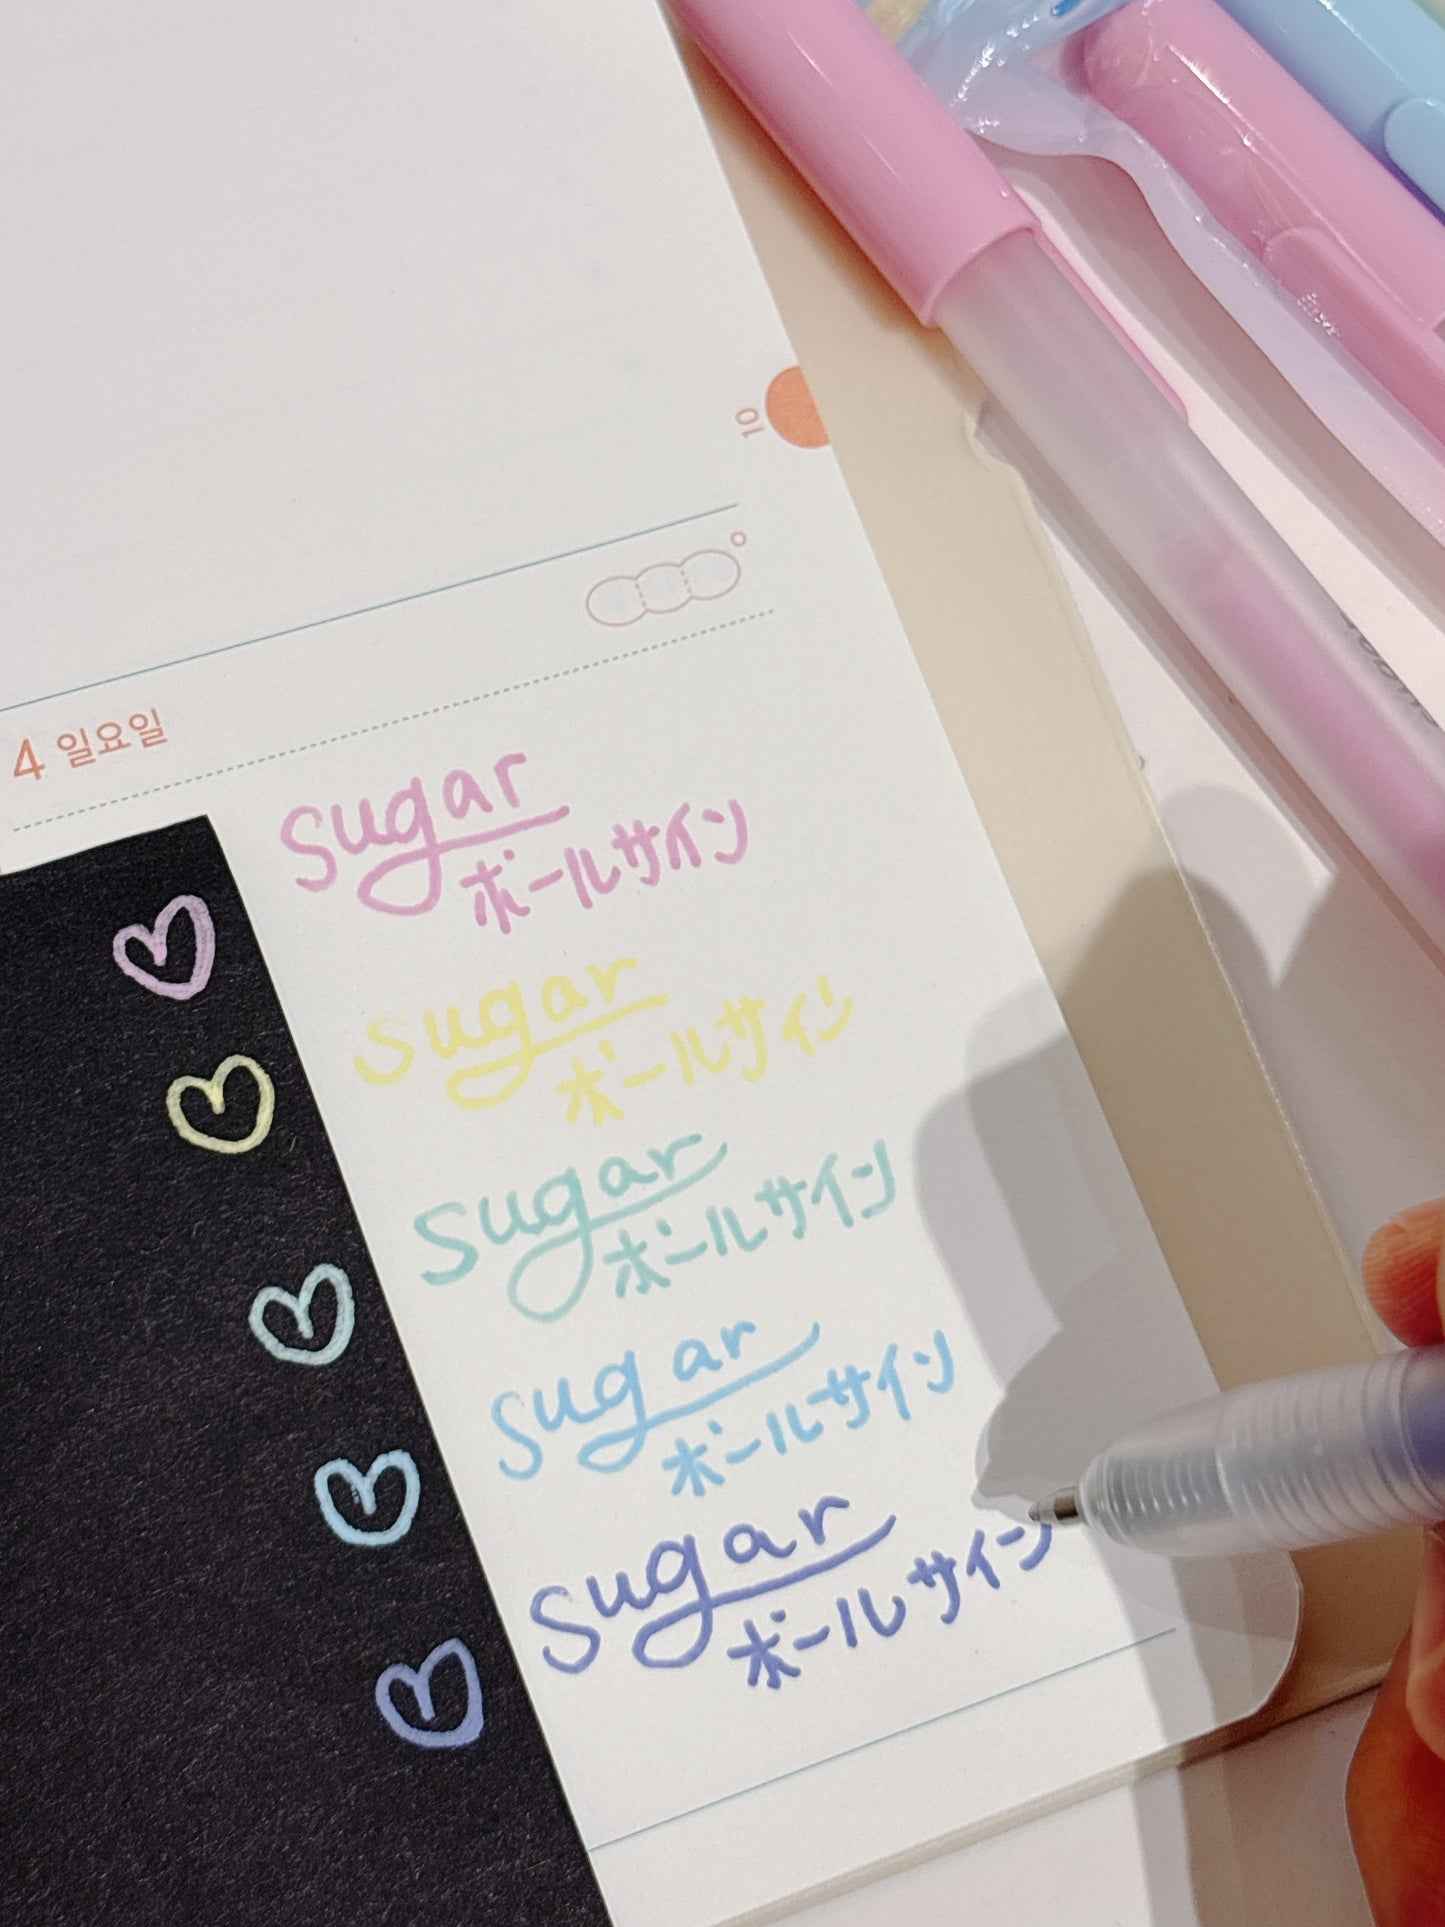 10
4 일요일
sugar
ボールサイン
sugar
ボールサイン
sugar
ボールサイン
sugar
ボールサイン
sugar
ボールサイン